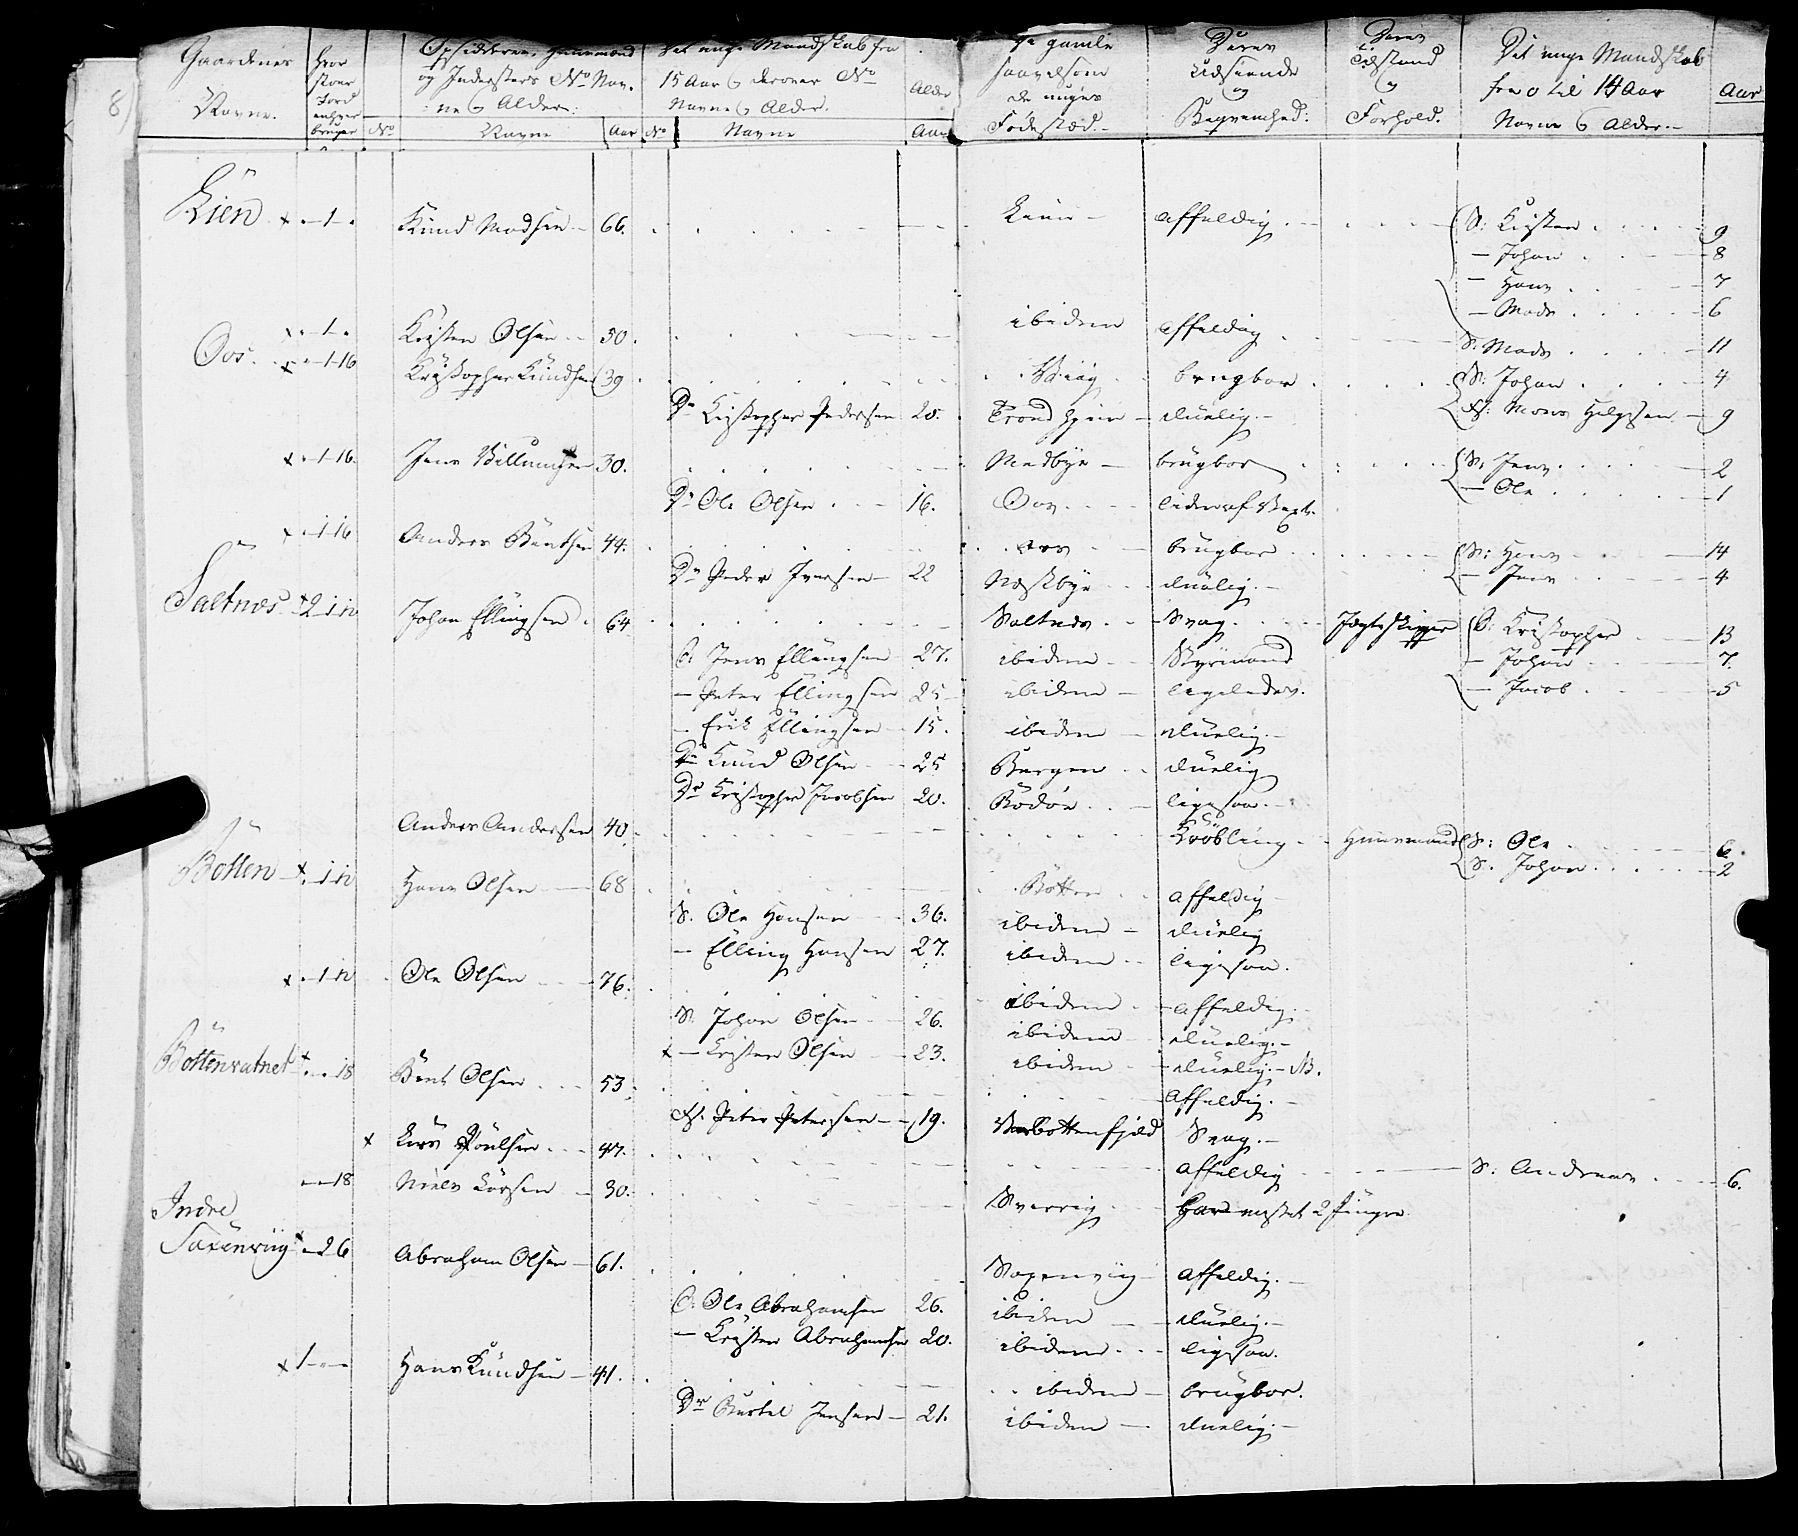 8)
Gaardenes Navne.
Hvor stoer Jord enhver bruger
No
Opsiddernes, Huusmænd og Indersters No Navne & Alder:
Navne
Aar
Det unge Mandskab fra 15 Aar & derover No Navne & Alder.
No
Navne
Alder
Aar
De gamle saavelsom de unges Fødested.
Deres Udseende og Beqvemhed:
Deres Tilstand & Forhold.
Det unge Mandskab fra 0 til 14 Aar Navne & Alder.
Aar
Lien x - 1 - Knud Madsen 66. Lien affældig S: Kristen 9
- Johan 8
- Hans 7
- Mads 6
x - 1 - Kristen Olsen 50. ibidem affældig S. Mads 11
Oos x - 1-16 Kristopher Knudsen 39 brugbar S: Johan 4
Dr Kristopher Pedersen 20. Trondhjem duelig. Mons Helgesen 9
x - 1-16. Jens Willumsen 30. Medbye brugbar S: Jens 2
Dr Ole Olsen 16. Oos lider af - Ole 1
x - 1-16 Anders Bentsen 44. Oos brugbar S: Hans 14
Dr Peder Iversen 22 Næstbye duelig. - Jens 4
Saltnæs x 2 - Johan Ellingsen 64 Saltnæs Svag. Jægteskipper B: Kristopher 13
B: Jens Ellingsen 27. ibidem Styrmand - Johan 7.
- Peter Ellingsen 25 ibidem ligeledes. - Jacob 5
- Erik Ellingsen 15. ibidem duelig.
Dr Knud Olsen 25 Bergen duelig
Dr Kristopher Jacobsen 20. Bodøe ligesaa.
Anders Andersen 40. Krøbling Huusmand S: Ole 6.
S. Johan 2
Botten x - 1 Hans Olsen 68 Botten affældig
S. Ole Hansen 36. ibidem duelig
- Elling Hansen 27. ibidem ligesaa.
x - 1 Ole Olsen 76. ibidem affældig.
S. Johan Olsen 26. ibidem duelig.
x - Kristen Olsen 23. ibidem duelig. NB.
Bottenvatnet x - - 18 Bent Olsen 53. affældig.
Peter Petersen 19. Bottenfjeld Svag.
x Lars Poulsen 47. affældig S: Andreas 6.
- - 18 Niels Larsen 30. Sverrig har mistet 2 Fingre
Indre Saxenviig x - 26 Abraham Olsen 61. Saxenviig affældig.
B: Ole Abrahamsen 26. ibidem duelig.
- Kristen Abrahamsen 20. ibidem ligesaa.
x 1 - - Hans Knudsen 41. ibidem brugbar.
Dr Bertel Jensen 21. ibidem duelig.